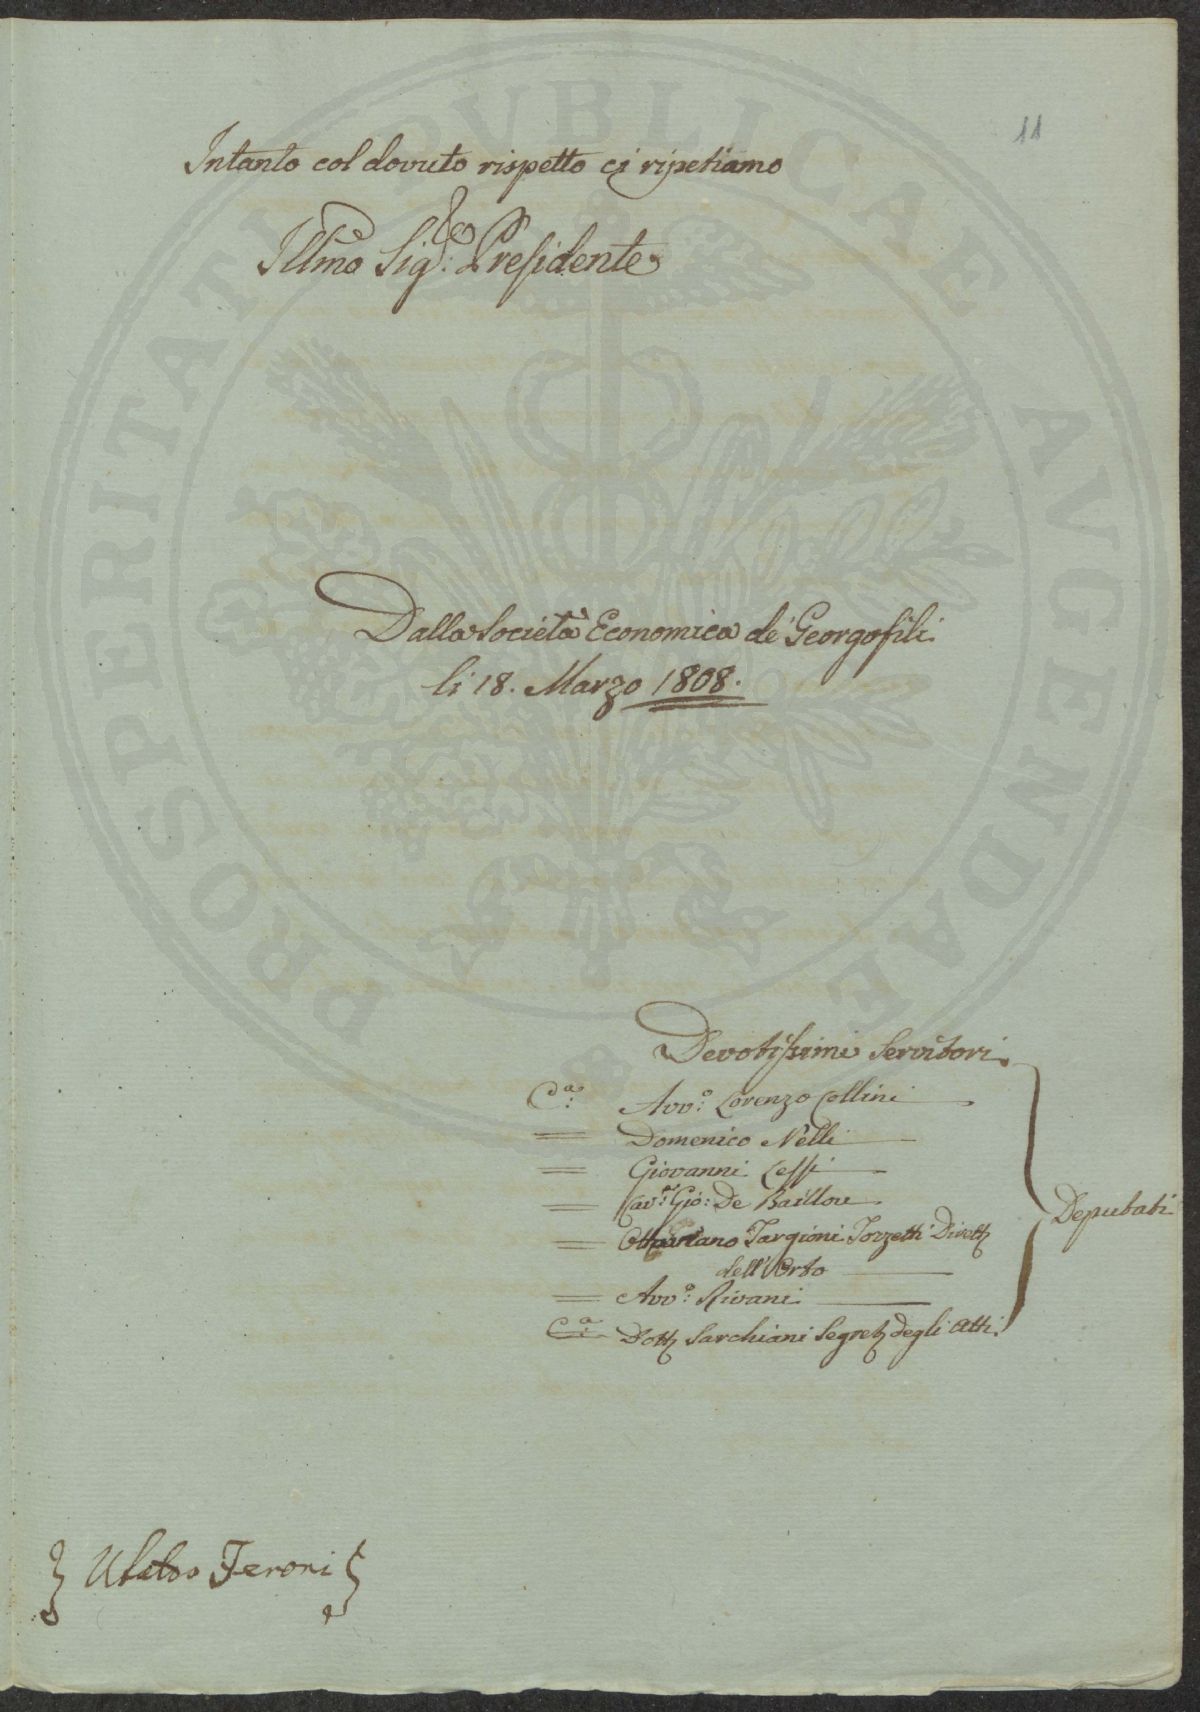 11
Intanto col dovuto rispetto ci ripetiamo
Illmo Sig.re Presidente
Dalla Società Economica de' Georgofili
li 18. Marzo 1808.
Devotissimi Servitori
C.a: Avv.o: Lorenzo Collini
= Domenico Nelli
= Giovanni Lessi
= Cav.e: Gio: De Baillou
= Ottaviano Targioni Tozzetti Dirett
dell'Orto
= Avv.o: Rivani
C.a: Dott Sarchiani Segret degli Atti
Deputati
Ubaldo Feroni
PROSPERITATI PVBLICAE AVGENDAE